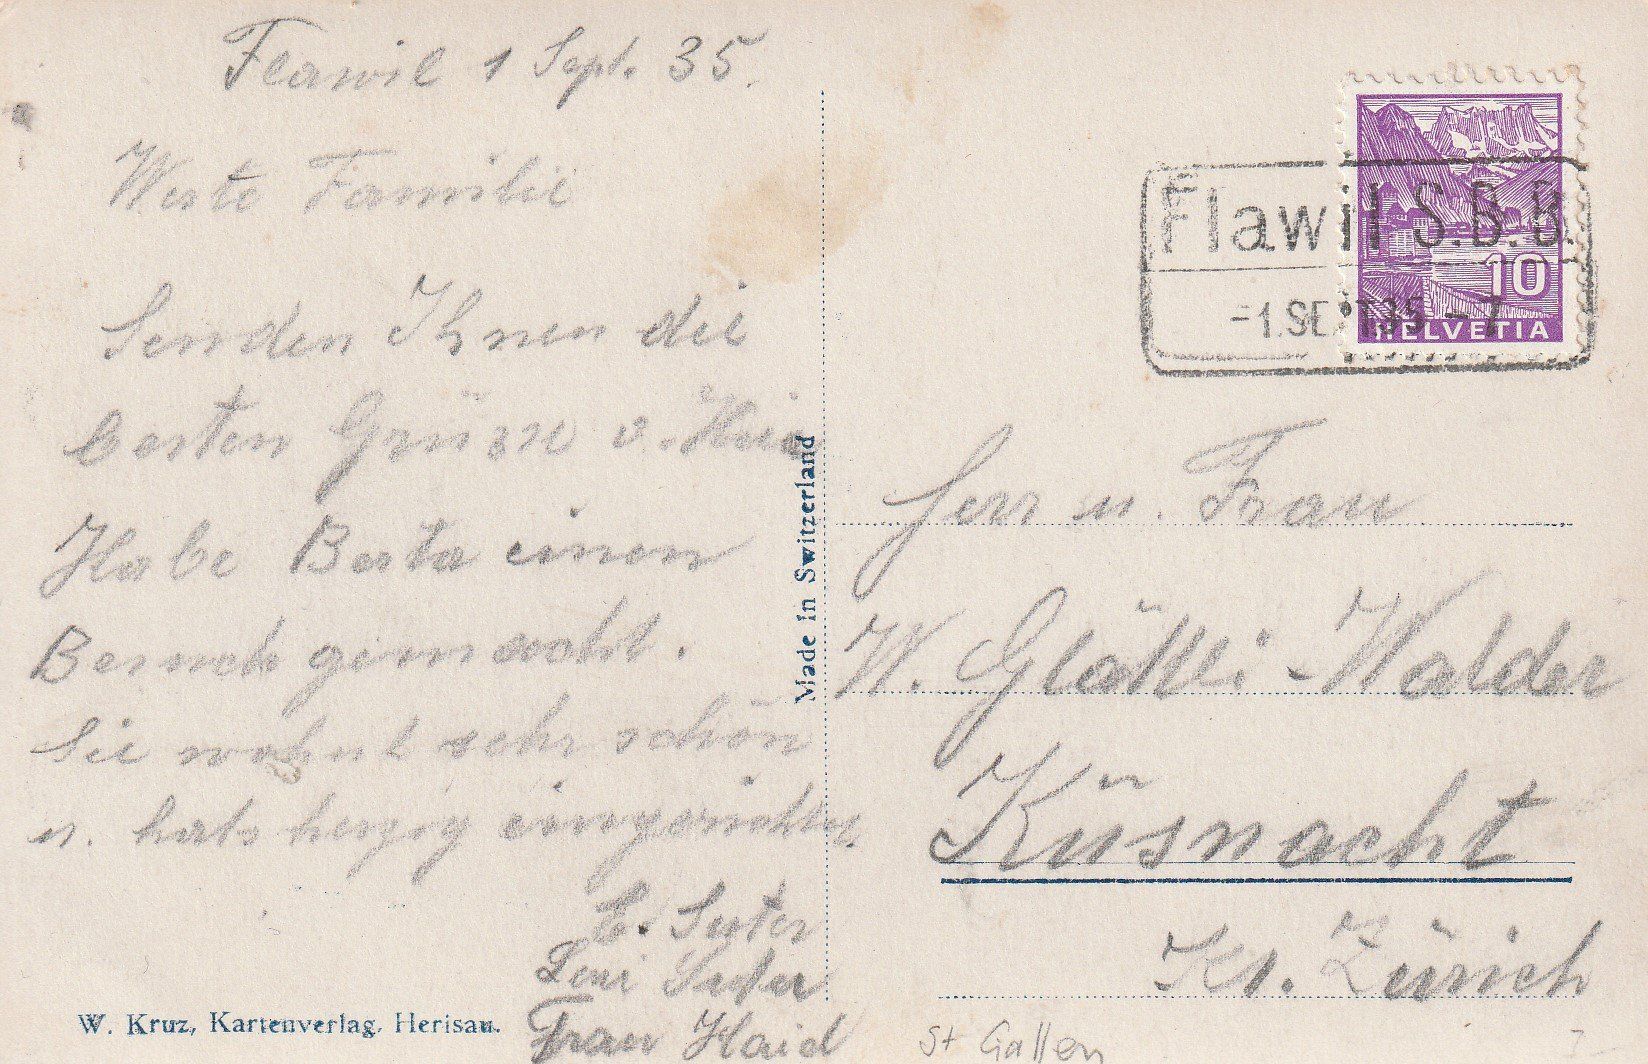 Flawil 1 Sept. 35.
Werte Familie
Senden Ihnen die
besten Grüsse v. Hier
Habe Berta einen
Besuch gemacht.
Sie wohnt sehr schön
u. hats herzig eingerichtet.
E. Suter
Leni Suter
Frau Haid
W. Kruz, Kartenverlag, Herisau.
Made in Switzerland
Flawil S.B.B.
-1.SEPT35.-7
10
HELVETIA
Herr u. Frau
W. Glättli-Walder
Küsnacht
Kt. Zürich
St Gallen